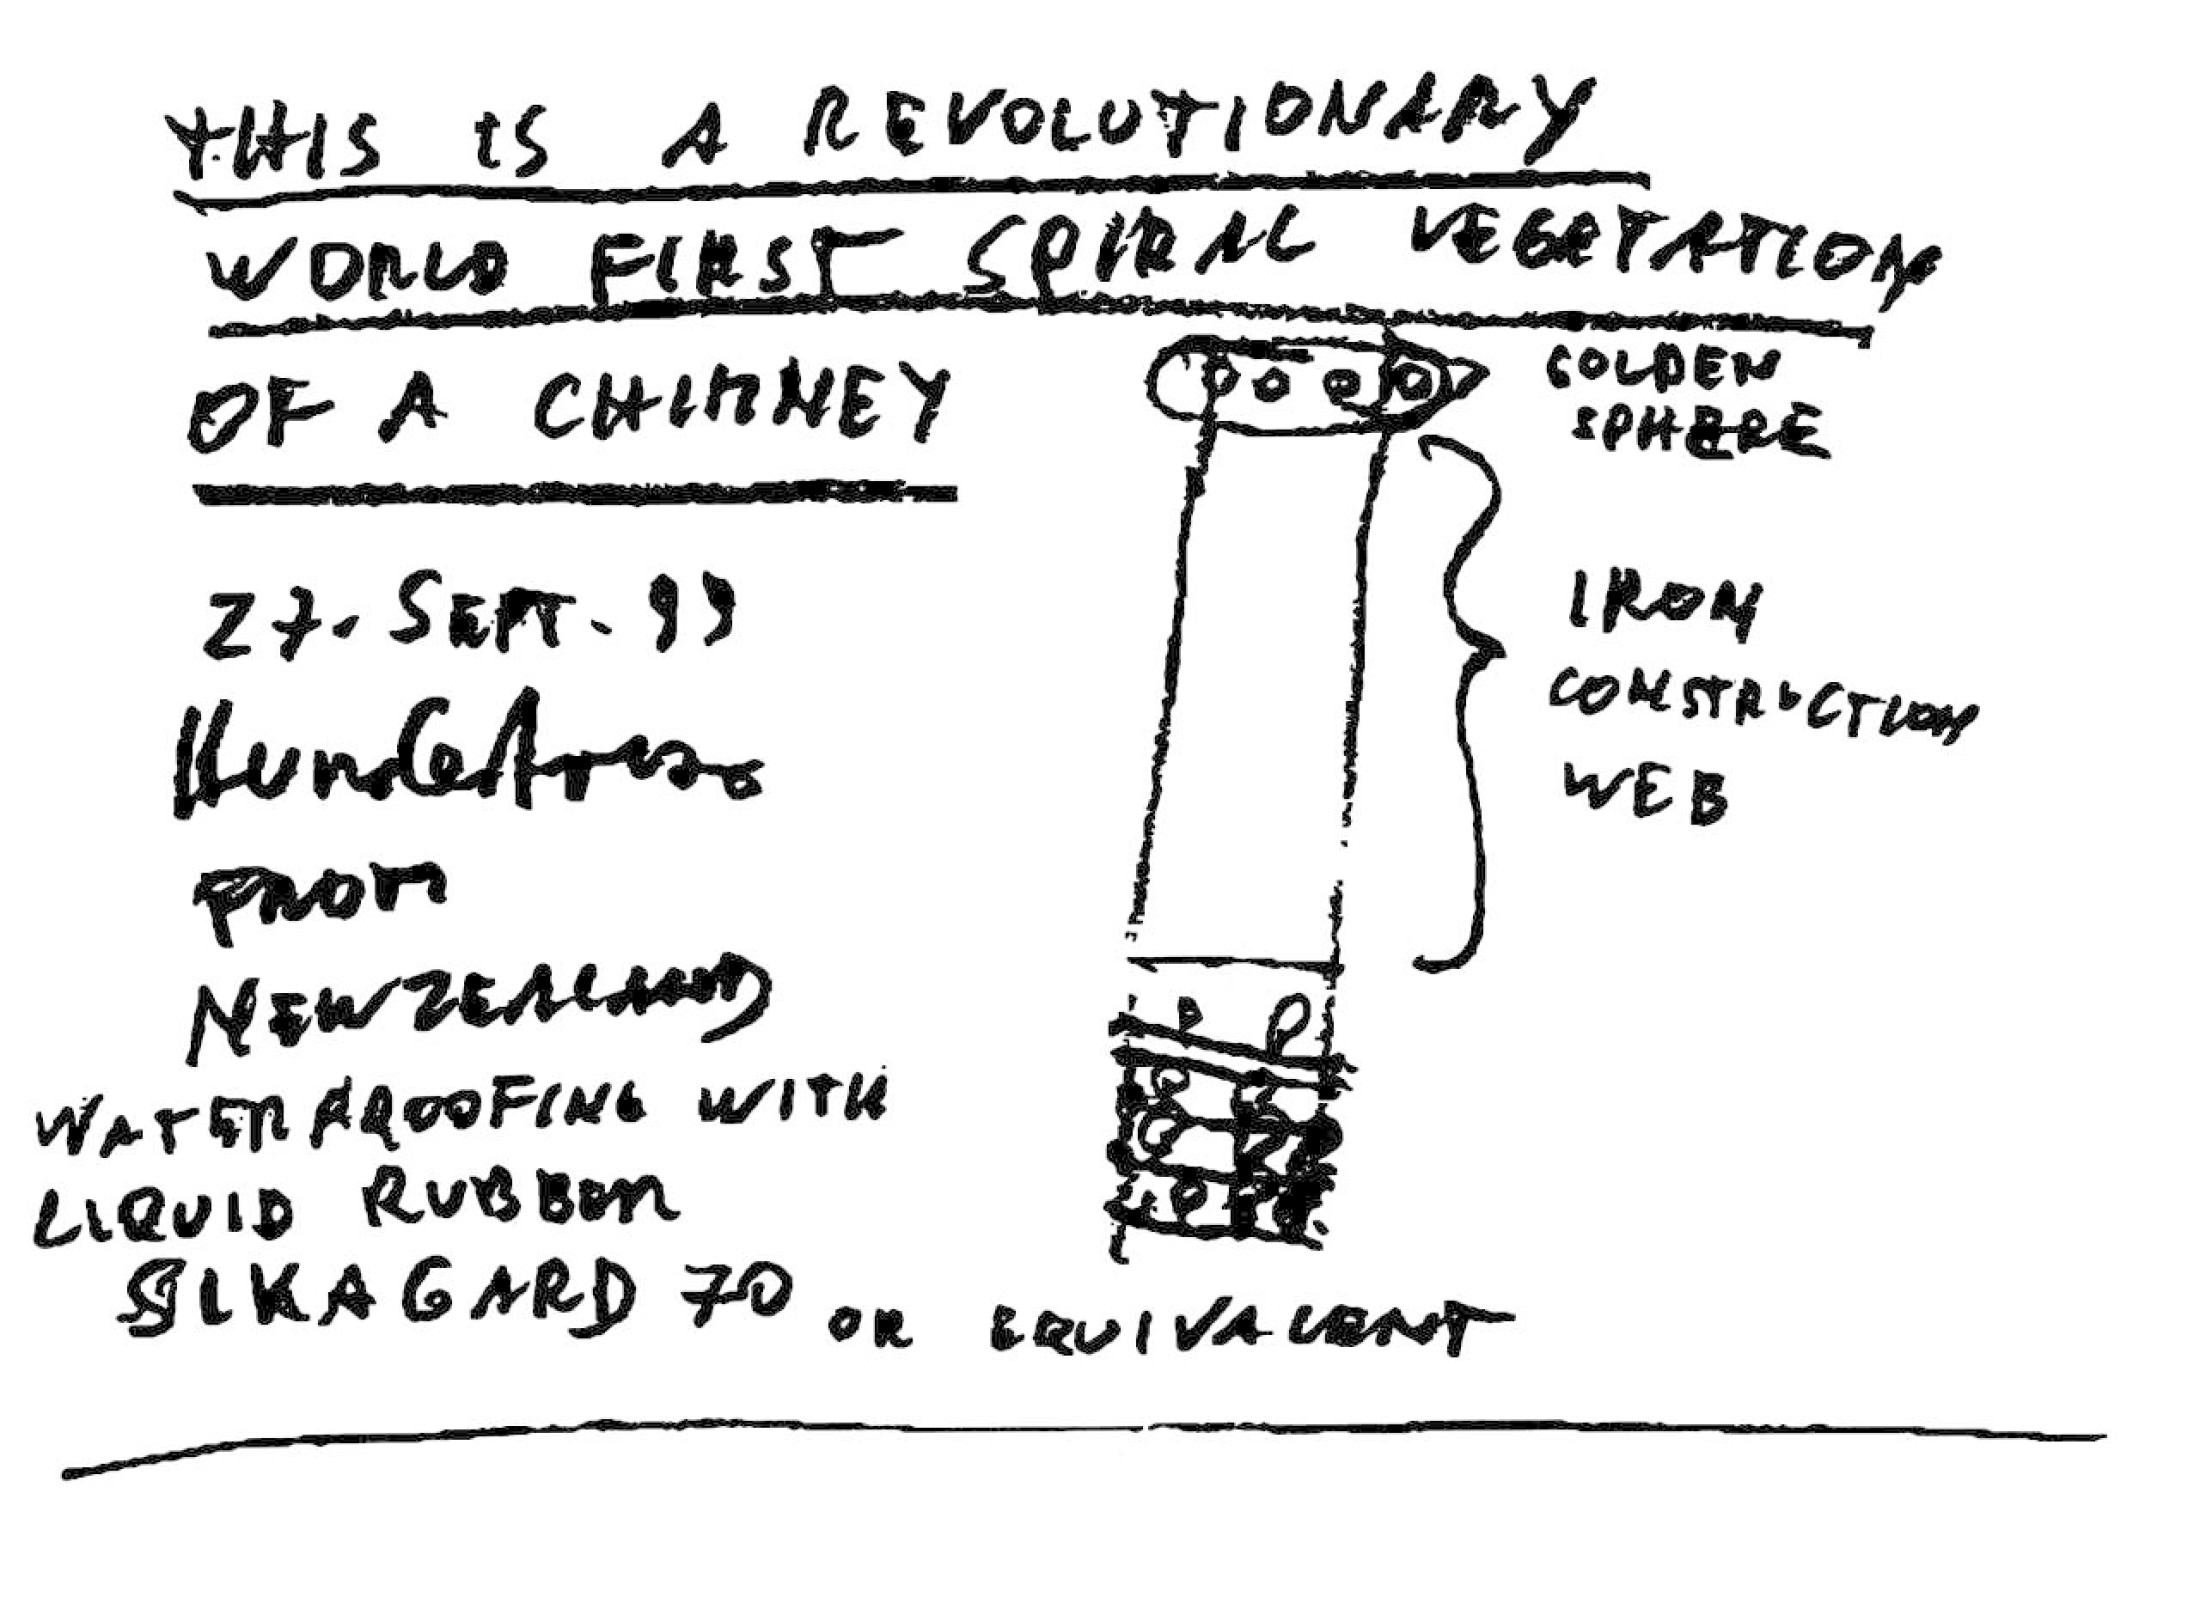 THIS IS A REVOLUTIONARY
WORLD FIRST SPIRAL VEGETATION
OF A CHIMNEY
GOLDEN
SPHERE
27. SEPT. 99
IRON
CONSTRUCTION
WEB
FROM
NEWZEALAND
WATERPROOFING WITH
LIQUID RUBBER
SIKAGARD 70 OR EQUIVALENT